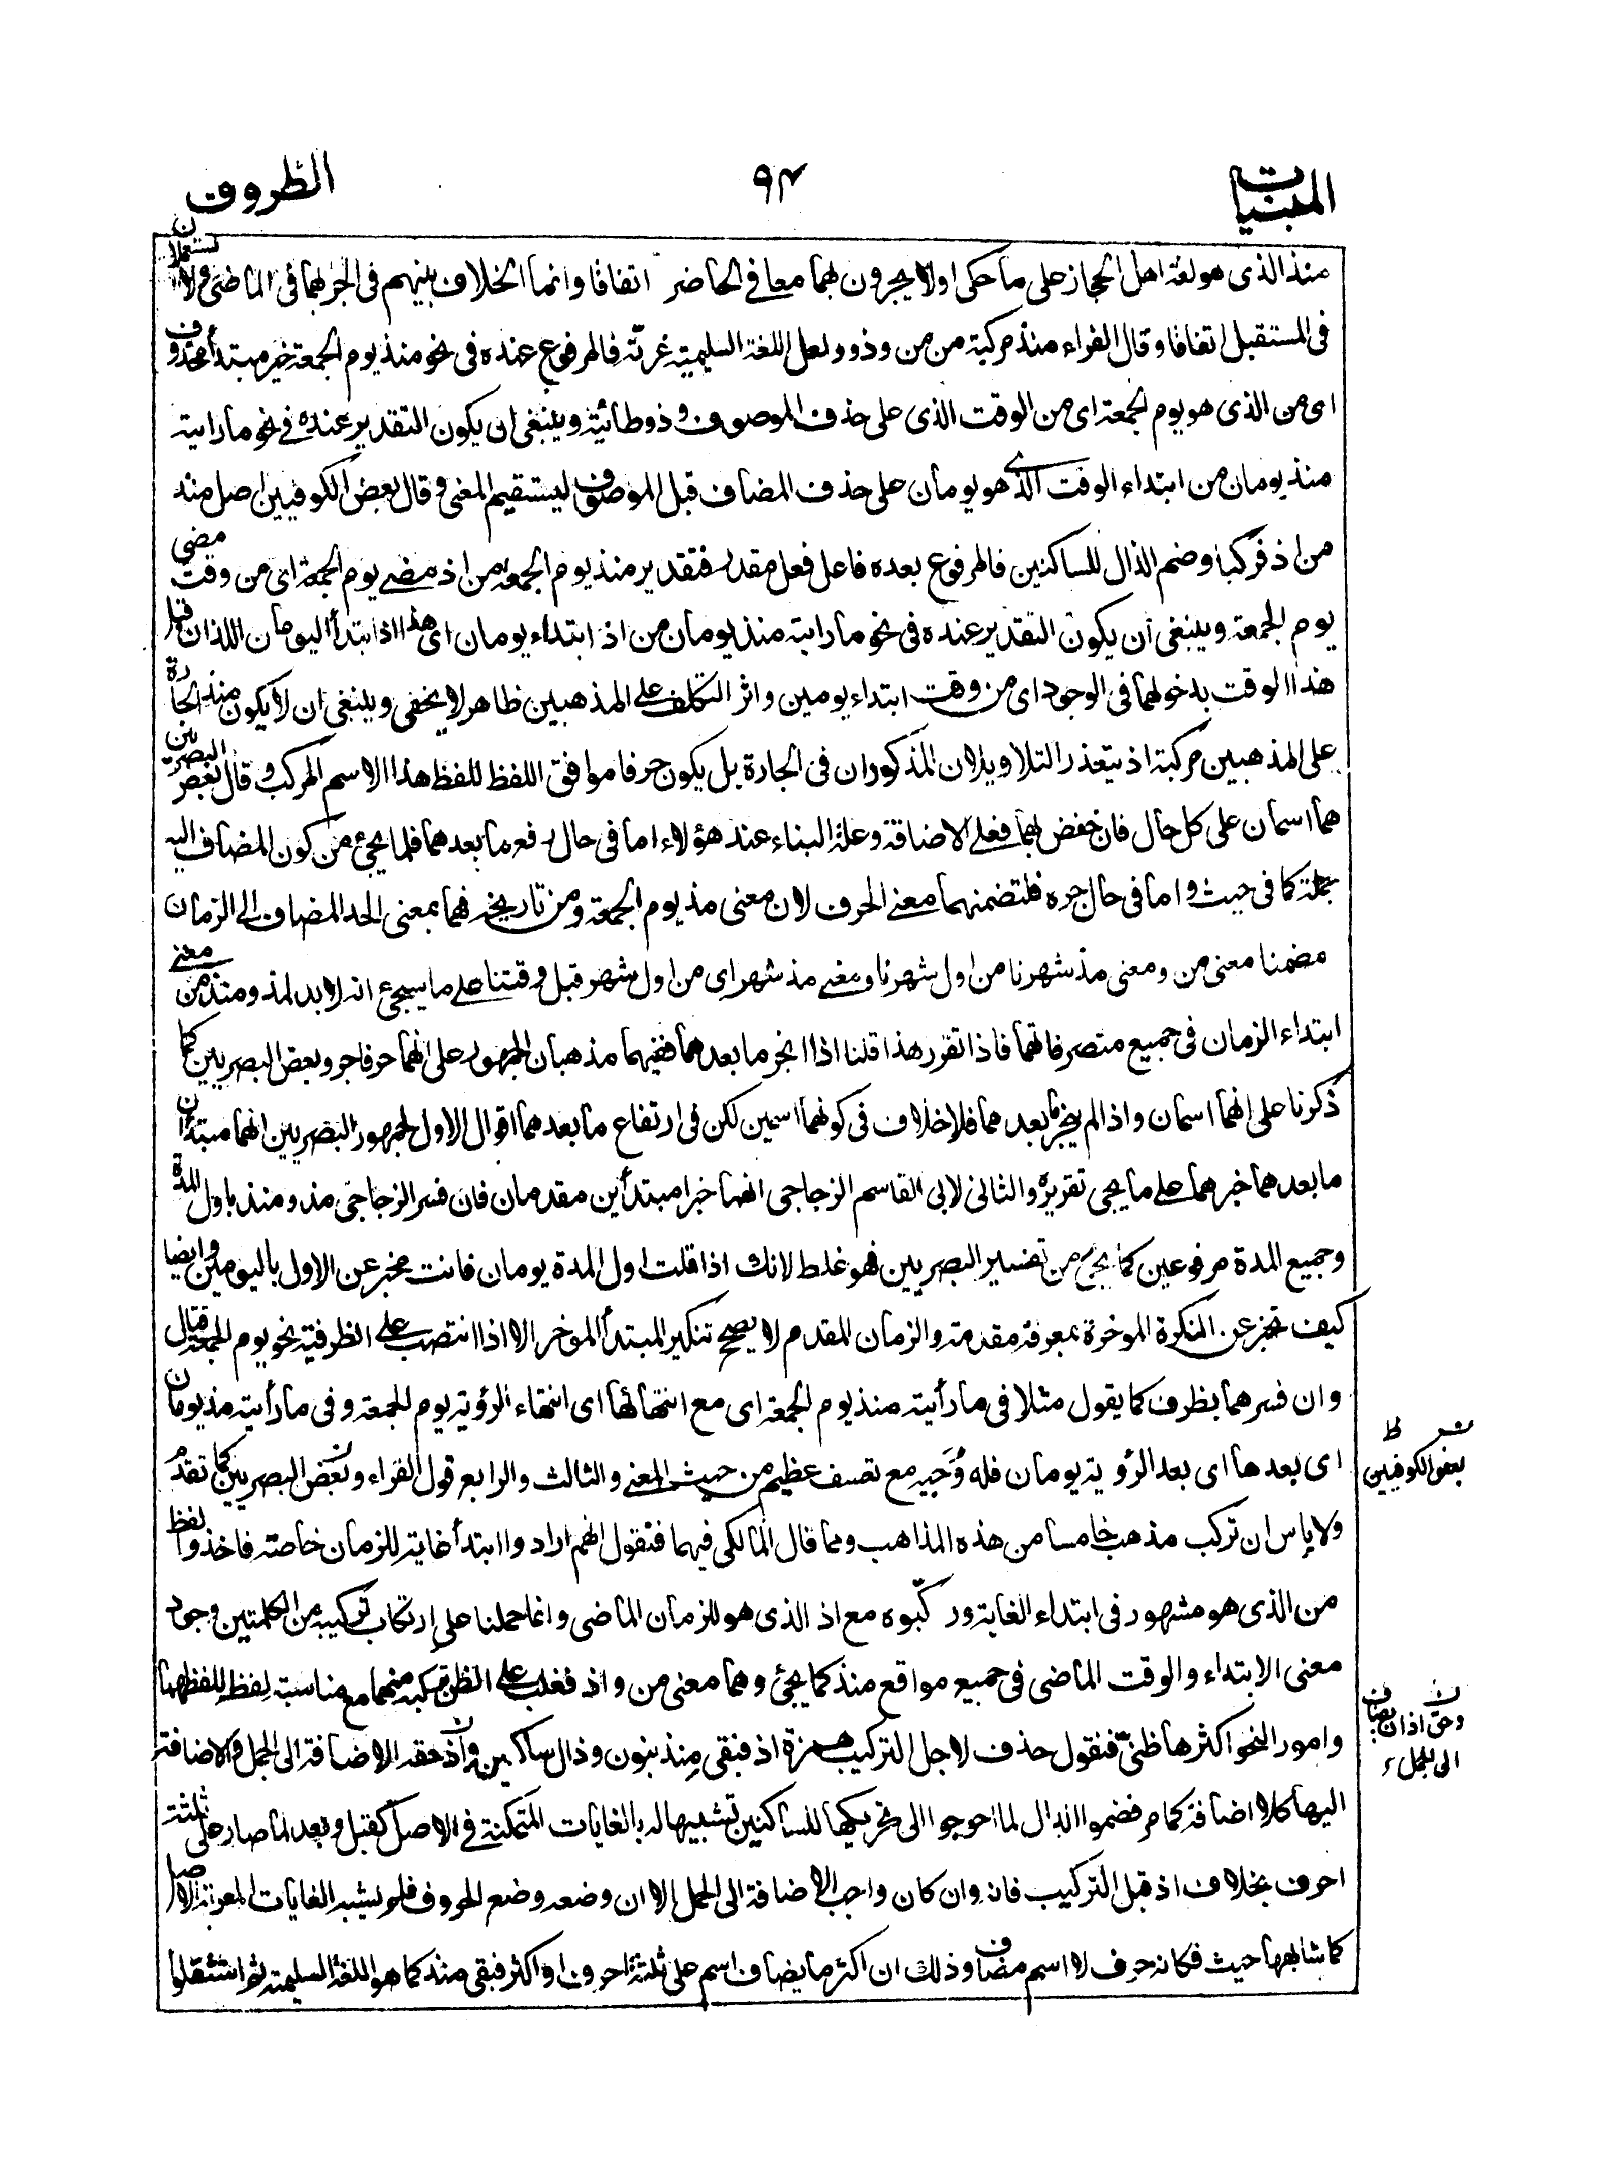 المبنيات
٩٤
الظروف
منذ الذى هو لغة اهل الحجاز على ما حكى اولا يجرون بهما معا فى الحاضر اتفاقا وانما الخلاف بينهم فى الجر بهما فى الماضى ولا يستعملان
فى المستقبل اتفاقا وقال الفراء منذ مركبة من من وذو ولعل اللغة السليمية غرته فالمرفوع عنده فى نحو منذ يوم الجمعة خبر مبتدأ محذوف
اى من الذى هو يوم الجمعة اى من الوقت الذى على حذف الموصوف وذو طائية وينبغى ان يكون التقدير عنده فى نحو ما رايته
منذ يومان من ابتداء الوقت الذى هو يومان على حذف المضاف قبل الموصوف ليستقيم المعنى وقال بعض الكوفيين اصل منذ
من اذ فركبا وضم الذال للساكنين فالمرفوع بعده فاعل فعل مقدر فتقدير منذ يوم الجمعة من اذ مضى يوم الجمعة اى من وقت مضى
يوم الجمعة وينبغى ان يكون التقدير عنده فى نحو ما رايته منذ يومان من اذ ابتداء يومان اى هذا اذ ابتدأ اليومان اللذان قبل
هذا الوقت بدخولهما فى الوجود اى من وقت ابتداء يومين واثر التكلف على المذهبين ظاهر لا يخفى وينبغى ان لا يكون منذ الجارة
على المذهبين مركبة اذ يتعذر التاويلان المذكوران فى الجارة بل يكون حرفا موافق اللفظ للفظ هذا الاسم المركب وقال بعض البصريين
هما اسمان على كل حال فان خفض بهما فعلى الاضافة وعلة البناء عند هؤلاء اما فى حال رفع ما بعدهما فلما يجئ من كون المضاف اليه
جملة كما فى حيث واما فى حال جره فلتضمنهما معنى الحرف لان معنى مذ يوم الجمعة من تاريخه فهما بمعنى الحد المضاف الى الزمان
مضمنا معنى من ومعنى مذ شهرنا من اول شهرنا ومعنى مذ شهر اى من اول شهر قبل وقتنا على ما سيجئ انه لا بد لمذ ومنذ من معنى
ابتداء الزمان فى جميع متصرفاتهما فاذا تقرر هذا قلنا اذا انجر ما بعدهما ففيهما مذهبان الجمهور على انهما حرفا جر وبعض البصريين كما
ذكرنا على انهما اسمان واذا لم ينجر ما بعدهما فلا خلاف فى كونهما اسمين لكن فى ارتفاع ما بعدهما اقوال الاول لجمهور البصريين انهما مبتدآن
ما بعدهما خبرهما على ما يجئ تقريره والثانى لابى القاسم الزجاجى انهما خبرا مبتدأين مقدمان فان فسر الزجاجى مذ ومنذ باول المدة
وجميع المدة مرفوعين كما يجئ من تفسير البصريين فهو غلط لانك اذا قلت اول المدة يومان فانت مخبر عن الاول باليومين وايضا
كيف تخبر عن النكرة الموخرة بمعرفة مقدمة والزمان المقدم لا يصحح تنكير المبتدأ الموخر الا اذا انتصب على الظرفية نحو يوم الجمعة قتال
وان فسرهما بظرف كما يقول مثلا فى ما رأيته منذ يوم الجمعة اى مع انتهائها اى انتهاء الرؤية يوم الجمعة وفى ما رأيته مذ يومان
اى بعدها اى بعد الرؤية يومان فله وجيه مع تعسف عظيم من حيث المعنى والثالث والرابع قول الفراء وبعض البصريين كما تقدم
بعض الكوفيين
ولا باس ان تركب مذهبا خامسا من هذه المذاهب ومما قال المالكى فيهما فنقول انهم ارادوا ابتدأ غاية للزمان خاصة فاخذوا لفظ
من الذى هو مشهور فى ابتداء الغاية وركبوه مع اذ الذى هو للزمان الماضى وانما حملنا على ارتكاب تركيبه من الكلمتين وجود
معنى الابتداء والوقت الماضى فى جميع مواقع منذ كما يجئ وهما معنى من واذ فغلب على الظن تركبه منهما مع مناسبة لفظه للفظهما
وامور النحو اكثرها ظنى فنقول حذف لاجل التركيب همزة اذ فبقى منذ بنون وذال ساكنين واذ حقه الاضافة الى الجمل والاضافة
وحق اذ ان يضاف الى الجمل
اليها كلا اضافة كما مر فضموا الذال لما احوجوا الى تحريكها للساكنين تشبيها له بالغايات المتمكنة فى الاصل كقبل وبعد لما صار على ثلثة
احرف بخلاف اذ قبل التركيب فانه وان كان واجب الاضافة الى الجمل الا ان وضعه وضع الحروف فلم يشبه الغايات المعربة الاصل
كما شابهها حيث فكانه حرف لا اسم مضاف وذلك ان اكثر ما يضاف اسم على ثلثة احرف او اكثر فبقى منذ كما هو اللغة السليمية ثم استثقلوا